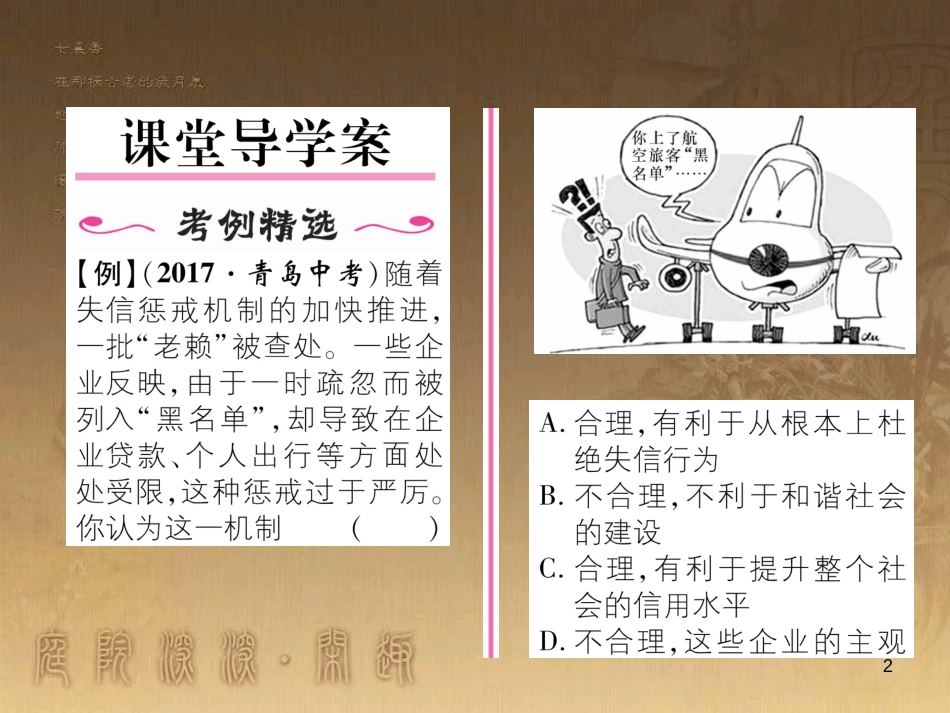 在那探古老的歲月裏
课堂导学案
考例精选
【例】(2017·青岛中考)随着
失信惩戒机制的加快推进,
一批“老赖”被查处。一些企
业反映,由于一时疏忽而被
列入“黑名单”,却导致在企
业贷款、个人出行等方面处
处受限,这种惩戒过于严厉。
你认为这一机制 ( )
你上了航
空旅客“黑
名单”……
?!
A. 合理,有利于从根本上杜
绝失信行为
B. 不合理,不利于和谐社会
的建设
C. 合理,有利于提升整个社
会的信用水平
D. 不合理,这些企业的主观
庭院深深·閑趣
2